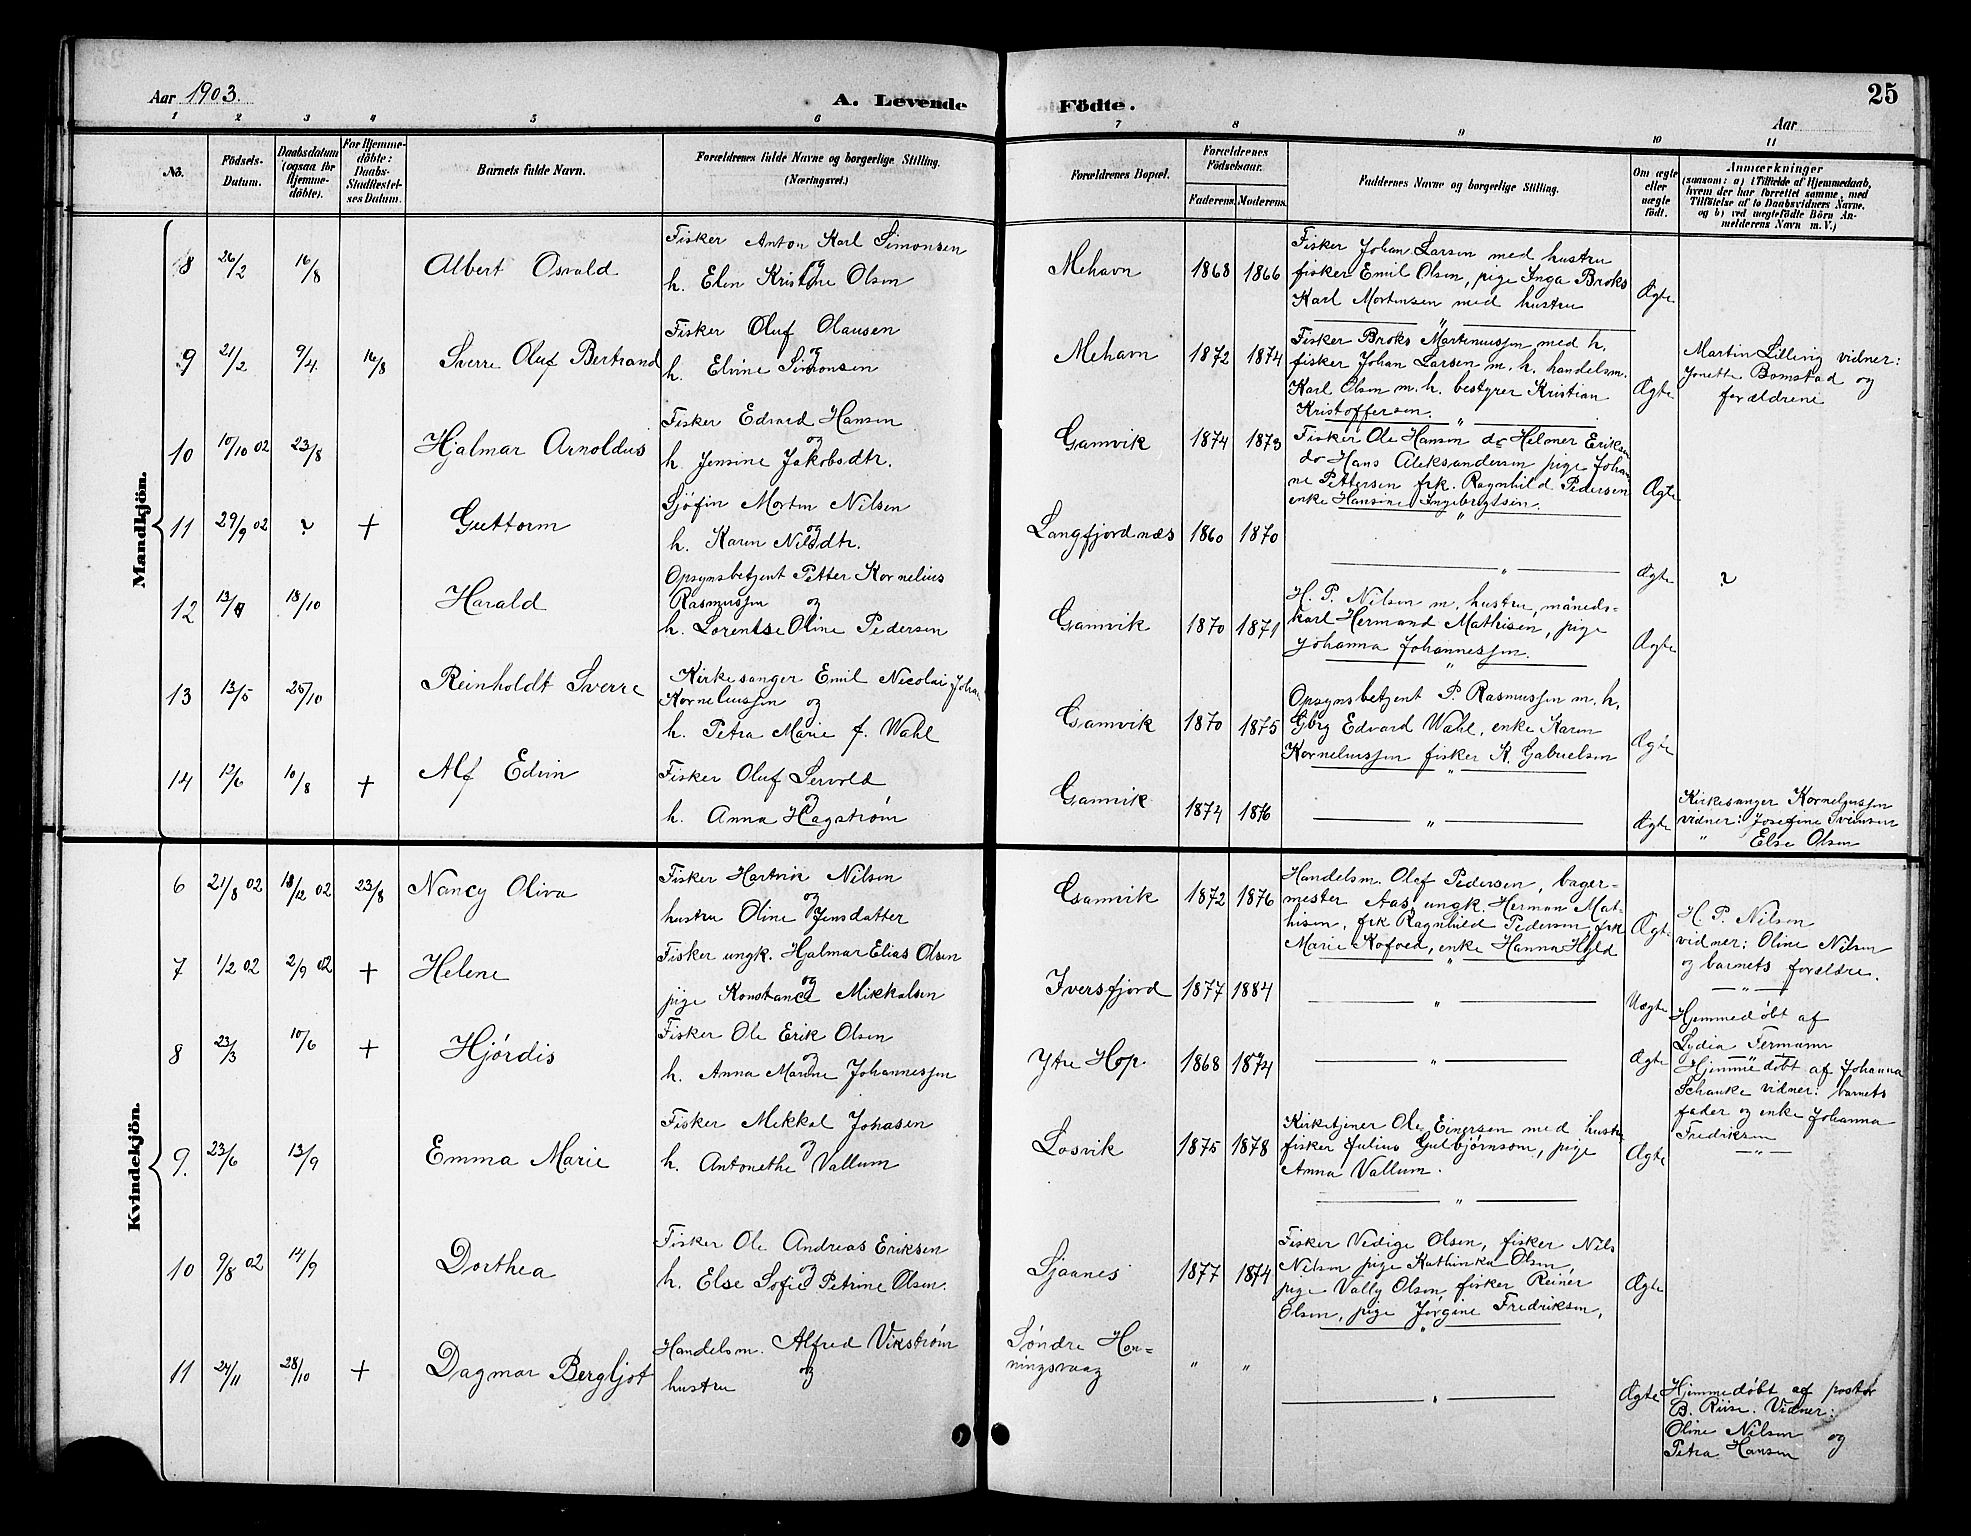 Aar 1903.
A. Levende
Födte.
25
Aar
1 2 3 4 5 6 7 8 9 10 11
No.
Födsels-
Datum.
Daabsdatum
(ogsaa for
Hjemme-
döbte).
For Hjemme-
döbte:
Daabs-
Stadfæstel-
ses Datum.
Barnets fulde Navn.
Forældrenes fulde Navne og borgerlige Stilling.
(Næringsvei.)
Forældrenes Bopæl.
Forældrenes
Födselsaar.
Faderens. Moderens.
Faddernes Navne og borgerlige Stilling.
Om ægte
eller
uægte
födt.
Anmærkninger
(saasom: a) i Tilfælde af Hjemmedaab,
hvem der har forrettet samme, med
Tilföielse af to Daabsvidners Navne.
og b) ved uægtefödte Börn An-
melderens Navn m. V.)
Mandkjön.
8 26/2 16/8 Albert Osvald
Fisker Anton Karl Simonsen
og
h. Elen Kristine Olsen
Mehavn 1868 1866
Fisker Johan Larsen med hustru
fisker Emil Olsen, pige Inga Broks
Karl Mortensen med hustru
Ægte
"
9 21/2 9/4. 16/8 Sverre Oluf Bertrand
Fisker Oluf Olausen
og
h. Elvine Simonsen
Mehavn 1872 1874
Fisker Broks Martinussen med h.
fisker Johan Larsen m. h. handelsm.
Karl Olsen m. h. bestyrer Kristian
Kristoffersen. "
Ægte
Martin Lilleng vidner:
Jonette Bomstad og
forældrene
10 10/10 02 23/8 Hjalmar Arnoldus
Fisker Edvard Hansen
og
h. Jensine Jakobsdtr.
Gamvik 1874 1873
Fisker Ole Hansen do Helmer Eriksen
do Hans Aleksandersen pige Johan
ne Pettersen frk. Ragnhild Pedersen
enke Hansine Ingebrigtsen.
Ægte
"
11 29/9 02 ? + Guttorm
Sjöfin Morten Nilsen
og
h. Karen Nilsdtr.
Langfjordnæs 1860 1870
"
Ægte ?
12 18/10 Harald
Opsynsbetjent Petter Kornelius
Rasmussen og
h. Lorentse Oline Pedersen
Gamvik 1870 1871
H. P. Nilsen m. hustru, måneds-
karl Hermand Mathisen, pige
Johanna Johannessen.
Ægte
"
13 13/5 25/10 Reinholdt Sverre
Kirkesanger Emil Nicolai Johan
Korneliussen og
h. Petra Marie f. Wahl
Gamvik 1870 1875
Opsynsbetjent P. Rasmussen m. h.
Gbrg Edvard Wahl, enke Karen
Korneliussen fisker K. Gabrielsen
Ægte
"
14 13/6 10/8 + Alf Edvin
Fisker Oluf Servold
og
h. Anna Hagström
Gamvik 1874 1876
"
Ægte
Kirkesanger Korneliussen
vidner: Josefine Svensen
" Else Olsen
Kvindekjön.
6 21/8 02 18/12 02 23/8 Nancy Oliva
Fisker Hartvik Nilsen
og
hustru Oline Jensdatter
Gamvik 1872 1876
Handelsm. Olaf Pedersen, bager-
mester Aas, ungk. Herman Mat-
hisen, frk Ragnhild Pedersen, frk
Marie Kofoed, enke Hanna Hyld
Ægte
H. P. Nilsen
vidner: Oline Nilsen
og barnets forældre.
"
7 1/2 02 2/9 02 + Helene
Fisker ungk. Hjalmar Elias Olsen
og
pige Konstance Mikkalsen
Iversfjord 1877 1884
"
Uægte
"
8 23/3 10/6 + Hjørdis
Fisker Ole Erik Olsen
og
h. Anna Marine Johannessen
Ytre Hop. 1868 1874
"
Ægte
Hjemmedøbt af
Lydia Fermann
"
Hjemmedøbt af Johanna
Schanke vidner: barnets
fader og enke Johanna
Fredriksen
"
9. 23/6 13/9 Emma Marie
Fisker Mikkel Johasen
og
h. Antonethe Vallum
Losvik 1875 1878
Kirketjener Ole Einersen med hustru
fisker Julius Gulbjørnsom, pige
Anna Vallum.
Ægte
"
10 9/8 02 14/9 Dorthea
Fisker Ole Andreas Eriksen
og
h. Else Sofie Petrine Olsen.
Sjaanes 1877 1874
Fisker Vedige Olsen, fisker Nils
Nilsen pige Kathinka Olsen,
pige Vally Olsen, fisker Reiner
Olsen, pige Jørgine Fredriksen,
Ægte
"
11 24/11 28/10 + Dagmar Bergljot
Handelsm. Alfred Vikstrøm
og
hustru
Søndre Hon-
ningsvaag " "
"
Ægte
Hjemmedøbt af pastor
B. Riise. Vidner:
Oline Nilsen og
Petra Hansen